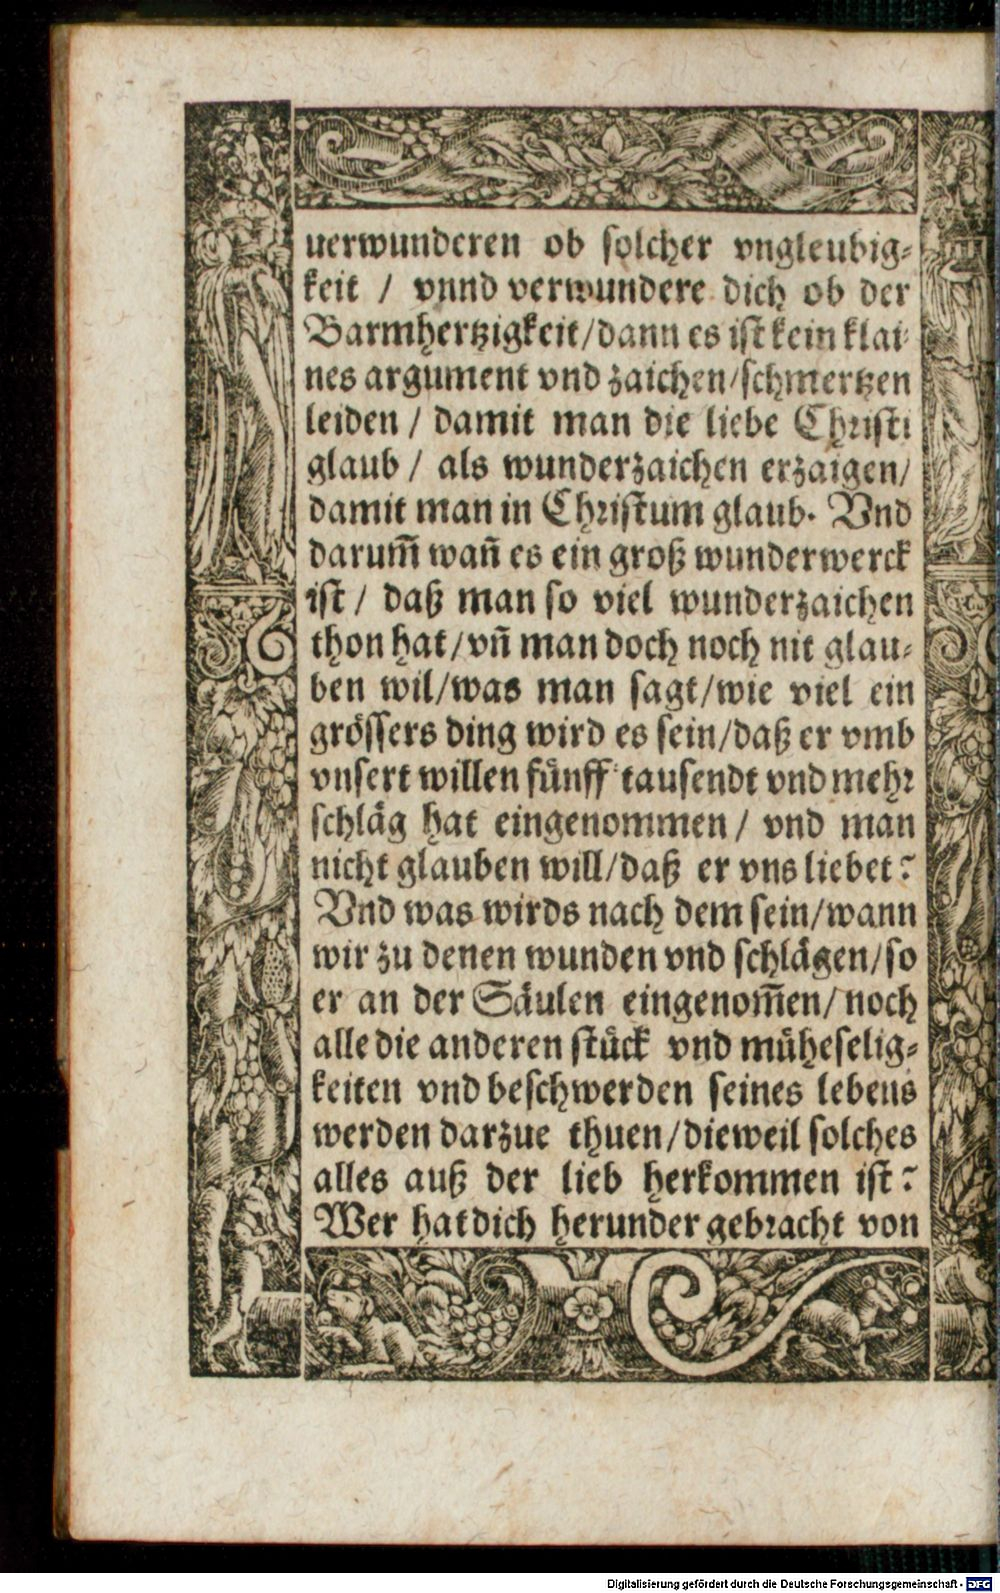 uerwunderen ob solcher vngleubig⸗
keit / vnnd verwundere dich ob der
Barmhertzigkeit/dann es ist kein klai⸗
nes argument vnd zaichen/schmertzen
leiden / damit man die liebe Christi
glaub / als wunderzaichen erzaigen/
damit man in Christum glaub. Vnd
darum̃ wañ es ein groß wunderwerck
ist / daß man so viel wunderzaichen
thon hat/vñ man doch noch nit glau⸗
ben wil/was man sagt/wie viel ein
grössers ding wird es sein/daß er vmb
vnsert willen fünff tausendt vnd mehr
schläg hat eingenommen / vnd man
nicht glauben will/daß er vns liebet?
Vnd was wirds nach dem sein/wann
wir zu denen wunden vnd schlägen/so
er an der Säulen eingenom̃en/noch
alle die anderen stück vnd müheselig⸗
keiten vnd beschwerden seines lebens
werden darzue thuen/dieweil solches
alles auß der lieb herkommen ist?
Wer hat dich herunder gebracht von
Digitalisierung gefördert durch die Deutsche Forschungsgemeinschaft - DFG